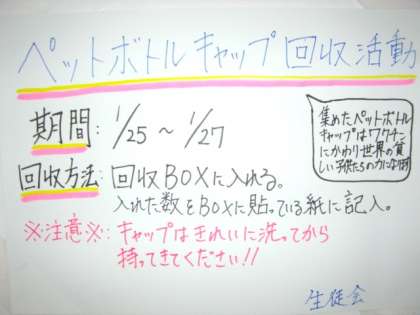 ペットボトルキャップ回収活動
期間: 1/25 〜 1/27
集めたペットボトル
キャップはワクチン
にかわり世界の貧
しい子供たちの力になります
回収方法: 回収BOXに入れる。
入れた数をBOXに貼っている紙に記入。
※注意※: キャップはきれいに洗ってから
持ってきてください!!
生徒会